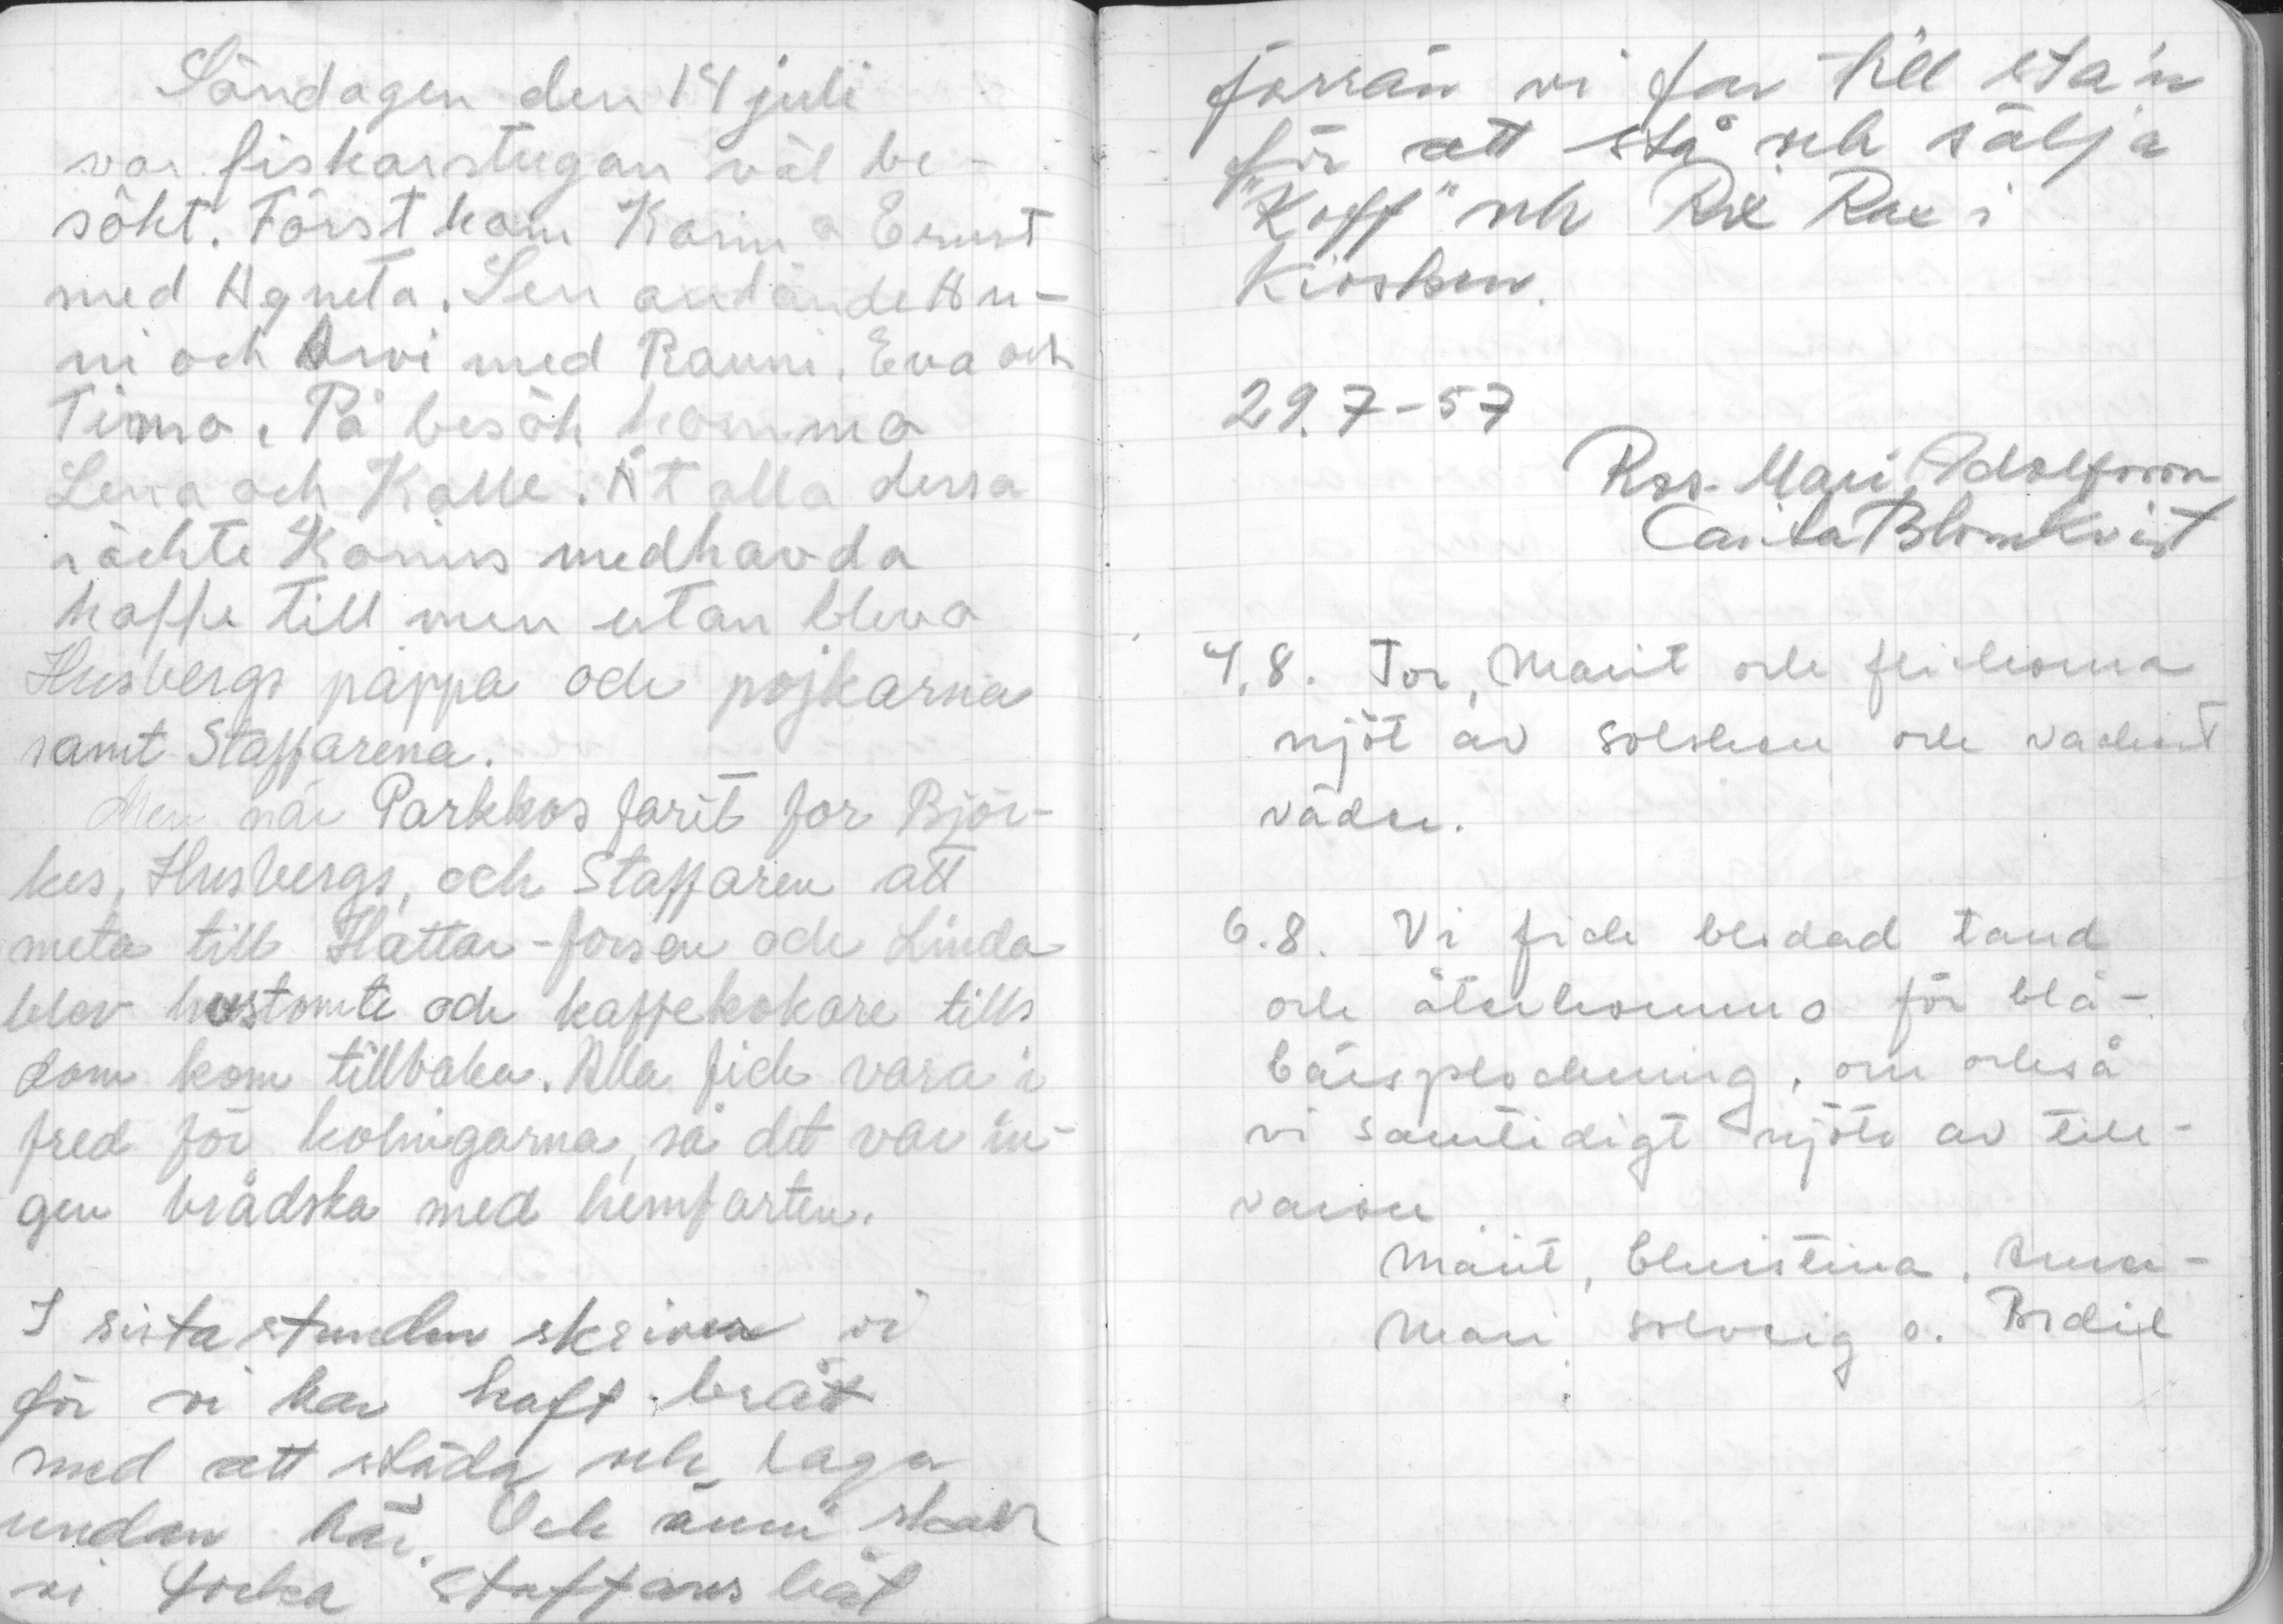 Söndagen den 14 juli
var fiskarstugan väl be-
sökt. Först kom Karin o Ernst
med Agneta. Sen anlände An-
ni och Arvi med Rauni, Eva och
Timo. På besök komma
Lena och Kalle. Åt alla dessa
räckte Karins medhavda
kaffe till men utan bleva
Husbergs pappa och pojkarna
samt Staffarena.
Men när Parkkos farit for Björ-
kes, Husbergs, och Staffaren att
meta till Hattar-forsen och Linda
blev hustomte och kaffekokare tills
dom kom tillbaka. Alla fick vara i
fred för kolingarna, så det var in-
gen brådska med hemfarten.
I sista stunden skriver vi
för vi har haft bråt
med att städa och laga
undan här. Och ännu skall
vi torka Staffans båt
förrän vi far till sta'n
för att stå och sälja
"Koff" och Rix Rax i
Kiosken.
29.7-57
Ros-Mari Adolfsson
Carita Blomkvist
4.8. Tor, Marit och flickorna
njöt av solsken och vackert
väder.
6.8. Vi fick blodad tand
och återkommo för blå-
bärsplockning, om också
vi samtidigt njöto av till-
varon
Marit, Christina, Anna-
Mari, Solveig o. Bodil